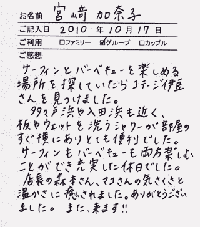 お名前 宮﨑 加奈子
ご記入日 2010年10月17日
ご利用 □ファミリー ☑グループ □カップル
ご感想
サーフィンとバーベキューを楽しめる
場所を探していたらまたご伊豆
さんを見つけました。
多々戸浜や入田浜も近く、
板やウェットを洗うシャワーが部屋の
すぐ横にありとても便利でした。
サーフィンもバーベキューも両方楽しむ
ことができ充実した休日でした。
店長の森本さん、マコさんの気さくさと
温かさに癒されました。ありがとうござい
ました。また、来ます!!